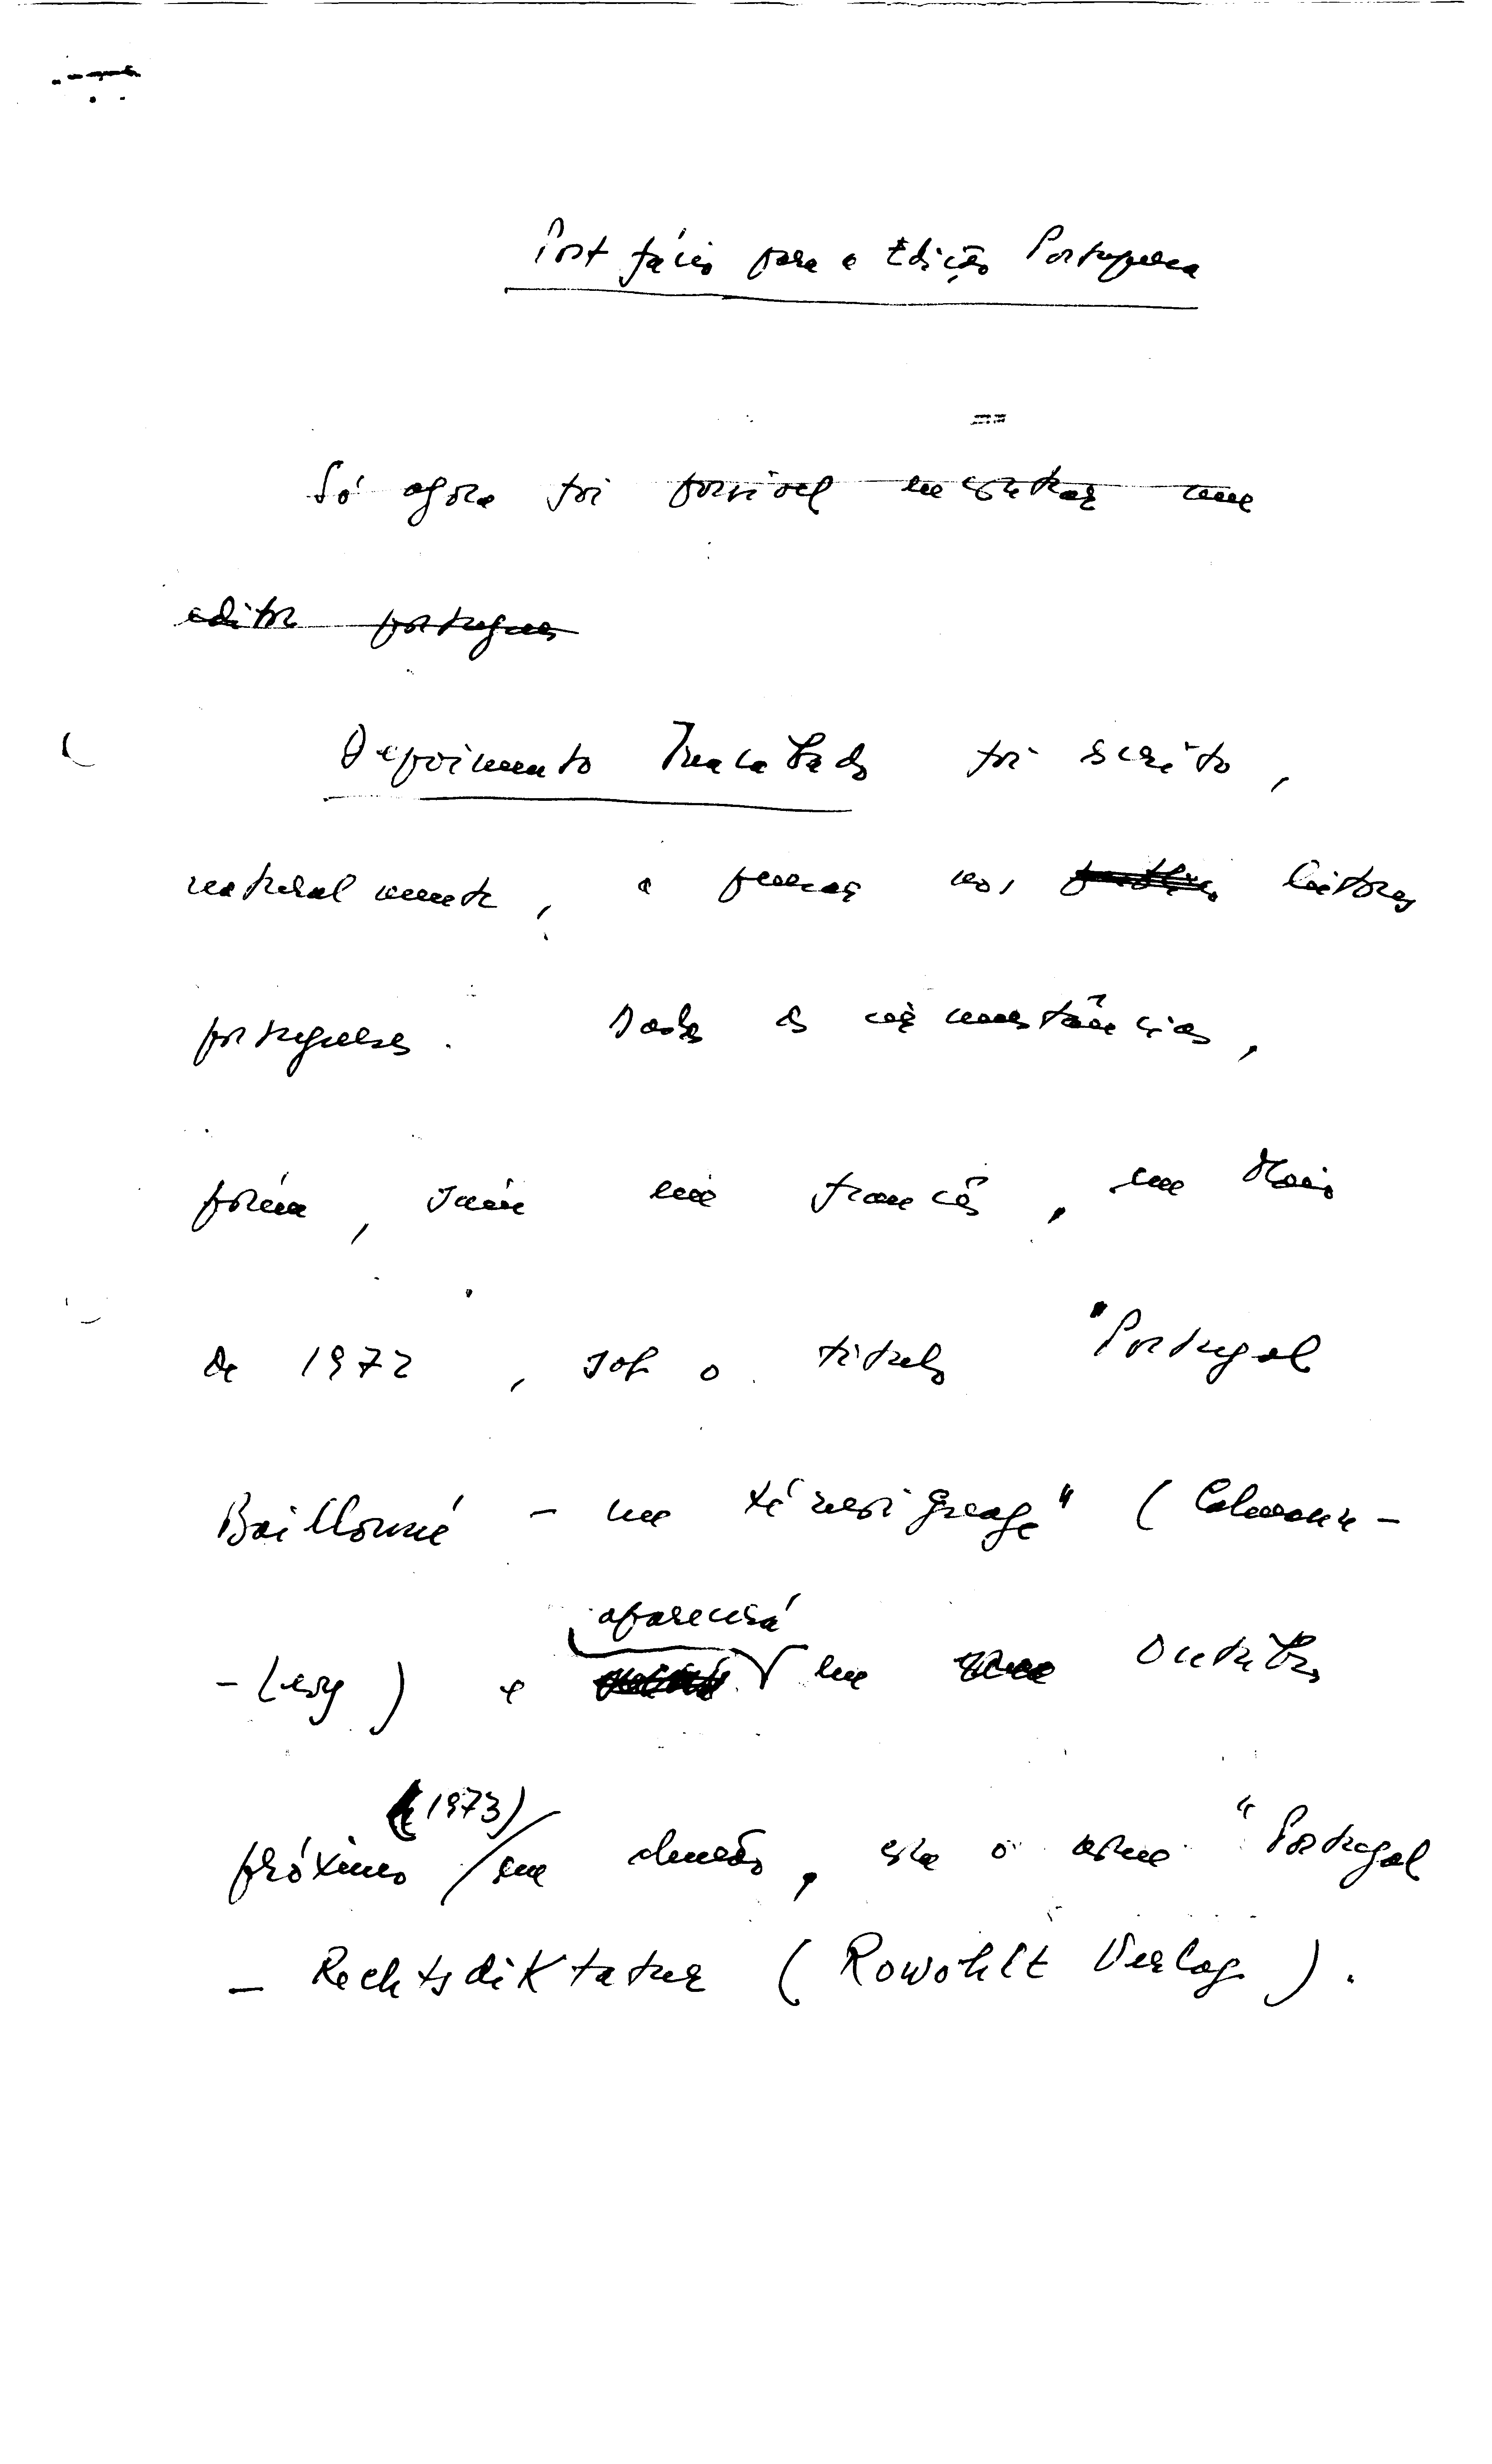 Post fácio para a Edição Portuguesa
Só agora foi possível encontrar um
editor português
Depoimento Inacabado foi escrito,
naturalmente, a pensar nos leitores
portugueses. Dadas as circunstâncias,
porém, saíu em francês, em Maio
de 1972, sob o título "Portugal
Baillonné - un témoignage" (Calmann-
aparecerá
-Levy) e em Outubro
(1973)
próximo em alemão, sob o nome "Portugal
- Rechtsdiktatur (Rowohlt Verlag).